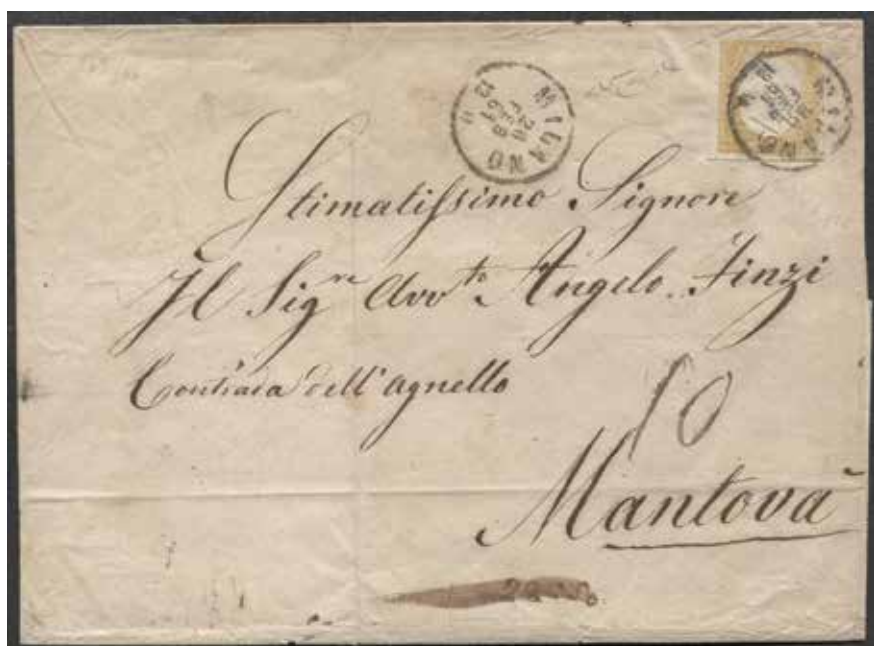 MILANO
26
FEB
61
12 M
MILANO
Stimatissimo Signore
Il Sig.re Avv.to Angelo Finzi
Contrada dell'agnello
10
Mantova